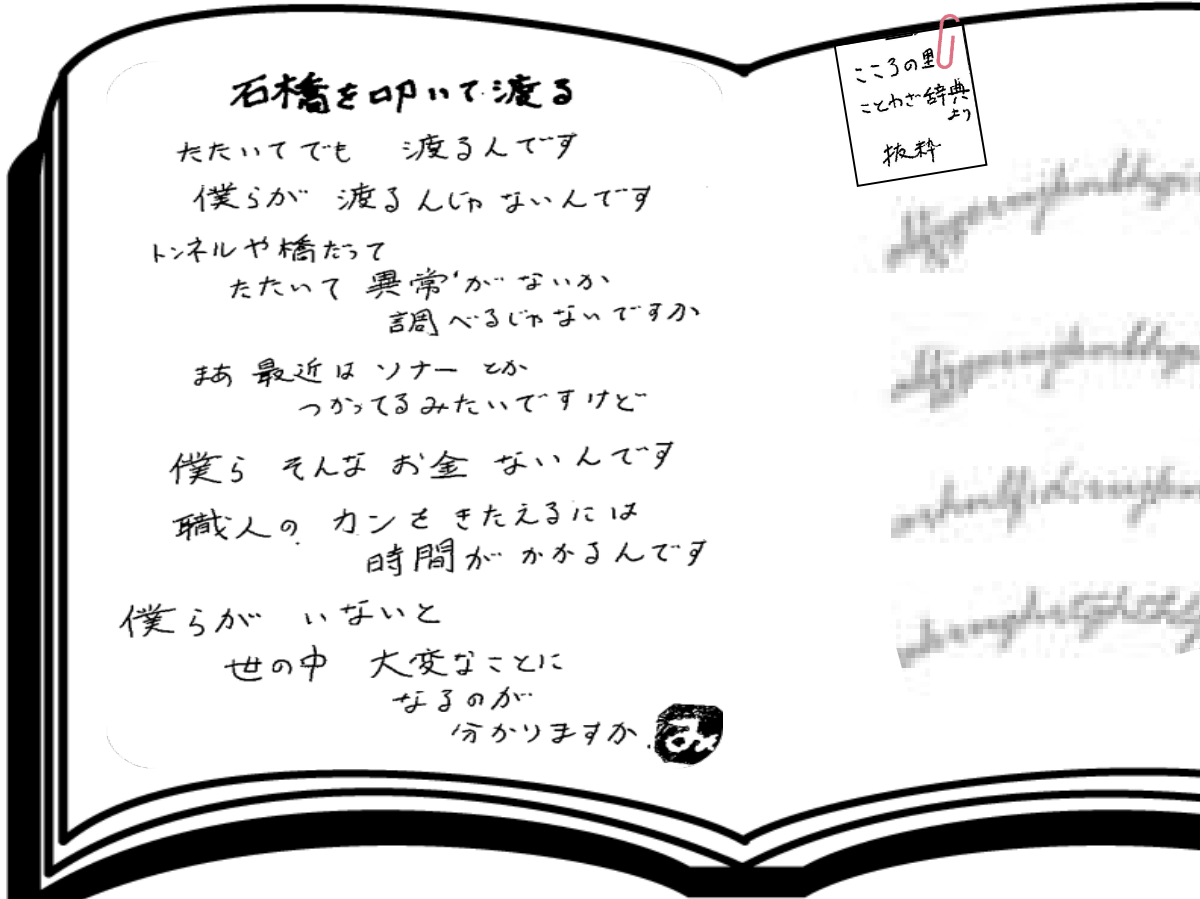 石橋を叩いて渡る
たたいてでも 渡るんです
僕らが 渡るんじゃないんです
トンネルや橋だって
たたいて 異常がないか
調べるじゃないですか
まあ 最近は ソナーとか
つかってるみたいですけど
僕ら そんな お金 ないんです
職人の カンを きたえるには
時間が かかるんです
僕らが いないと
世の中 大変なことに
なるのが
分かりますか
こころの里
ことわざ辞典
より
抜粋